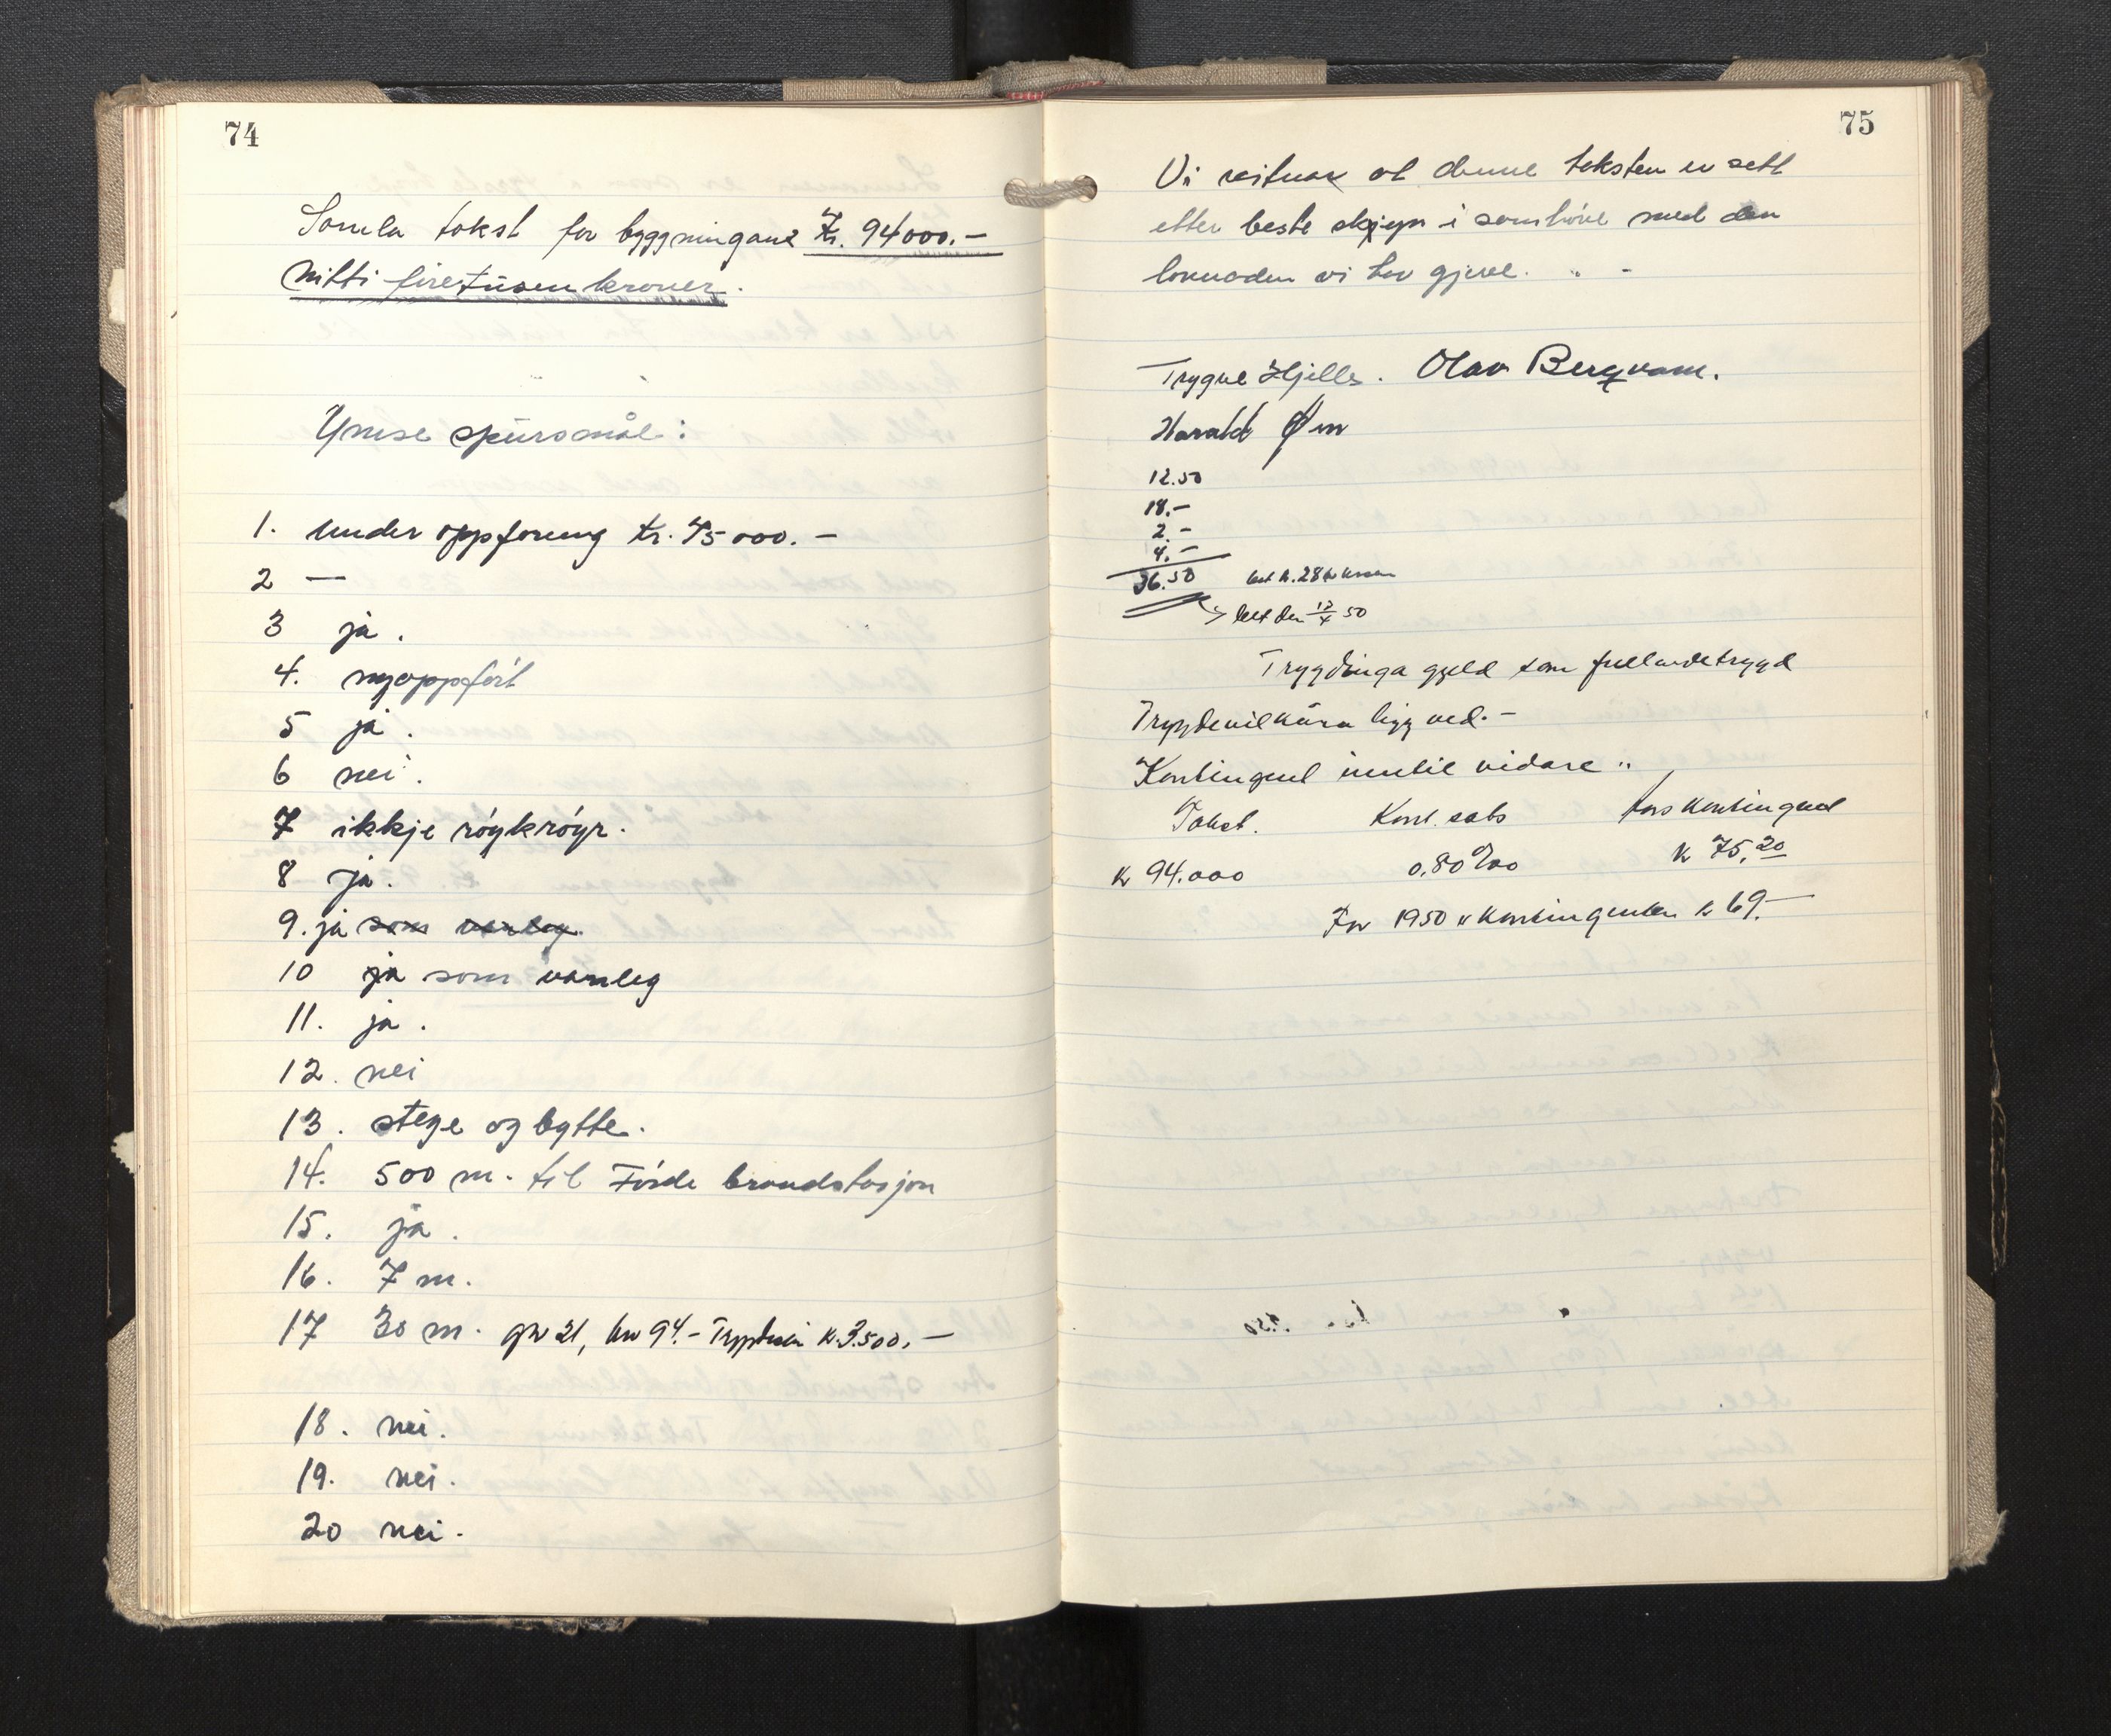 74
Samla takst for byggningane kr. 94000.—
Nitti firetusen kroner.
Ymse spursmål:
1. under oppforing kr. 45000.—
2 —
3 ja.
4. nyoppført
5 ja.
6 nei.
7 ikkje røykrøyr.
8 ja.
9. ja som vanleg.
10 ja som vanleg
11. ja.
12. nei
13. stege og bytte.
14. 500 m. til Førde brandstasjon
15. ja.
16. 7 m.
17 30 m. gnr 21, bnr 94.— kr. 3.500.—
18. nei.
19. nei.
20 nei.
75
Vi vitnar at denne taksten er sett
etter beste skjøyn i samhøve med den
lovnaden vi har gjeve.
Trygve Hjelle. Olav Bergvam.
Harald Øen
12.50
18.—
2.—
4.—
36.50
den 12/4 50
Trygdinga gjeld som fullverdetrygd
Trygdevilkåra ligg ved.—
Kontingent inntil vidare
Takst. Kont. sats års kontingent
kr 94.000 0,80 ‰ kr 75,20
For 1950 er kontingenten kr 69.—